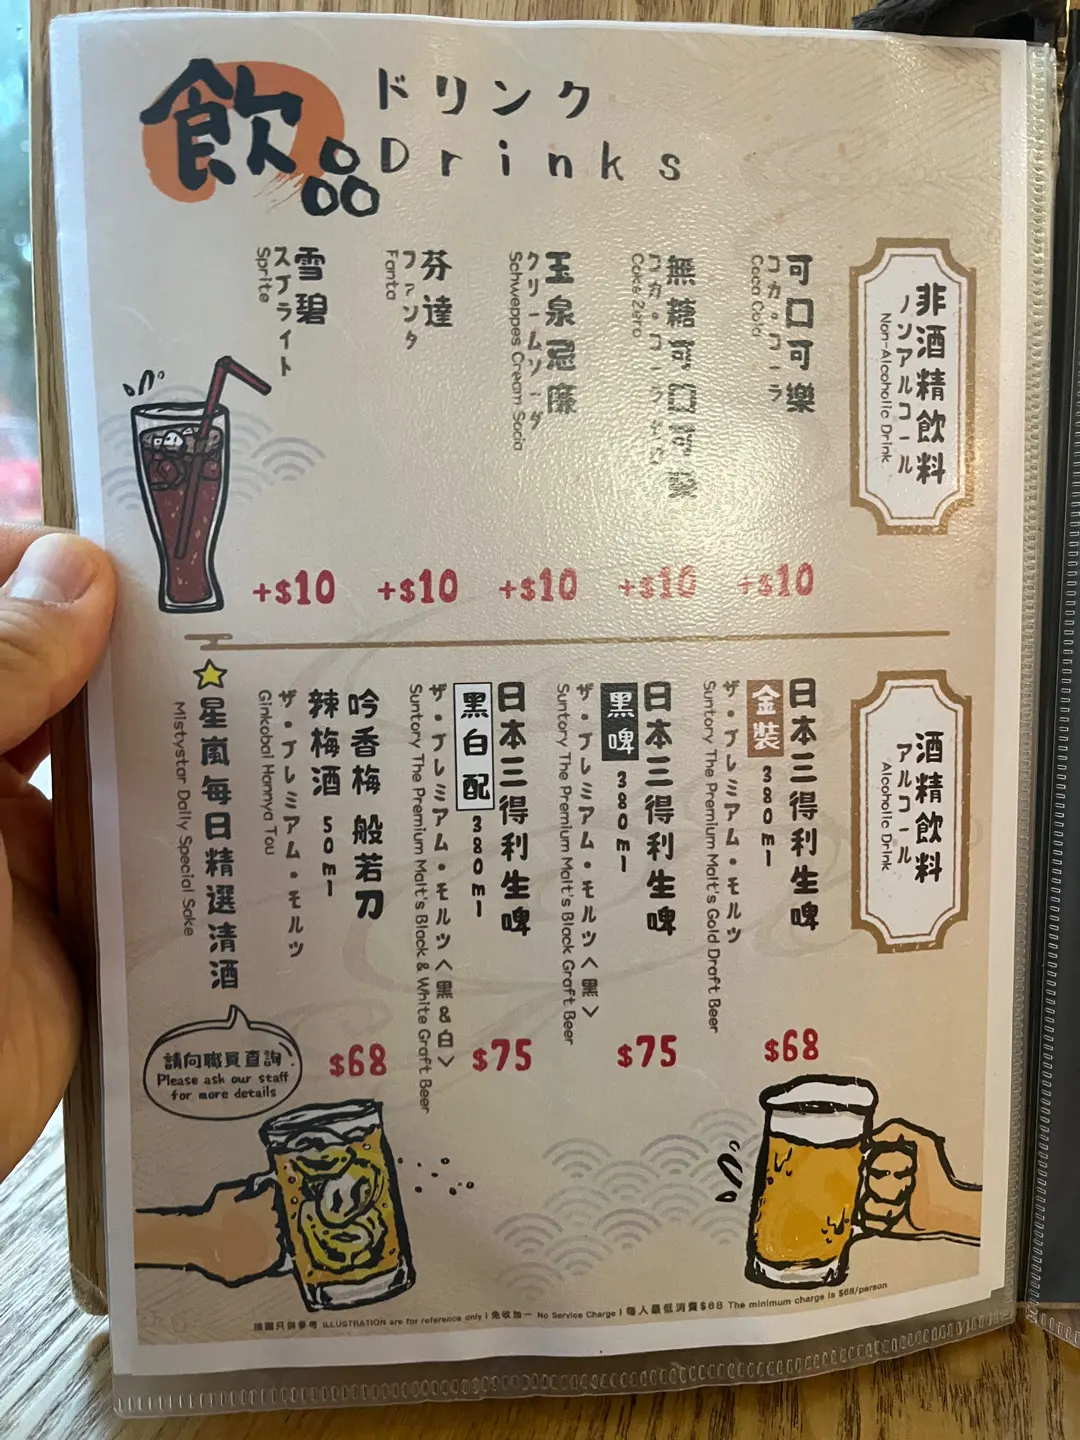 飲品
ドリンク
Drinks
非酒精飲料
ノンアルコール
Non-Alcoholic Drink
可口可樂
コカ・コーラ
Coca Cola
+$10
無糖可口可樂
Coke Zero
+$10
玉泉忌廉
クリームソーダ
Schweppes Cream Soda
+$10
芬達
ファンタ
Fanta
+$10
雪碧
スプライト
Sprite
+$10
酒精飲料
アルコール
Alcoholic Drink
日本三得利生啤
金裝 380ml
ザ・プレミアム・モルツ
Suntory The Premium Malt's Gold Draft Beer
$68
日本三得利生啤
黑啤 380ml
ザ・プレミアム・モルツ〈黒〉
Suntory The Premium Malt's Black Graft Beer
$75
日本三得利生啤
黑白配 380ml
ザ・プレミアム・モルツ〈黒&白〉
Suntory The Premium Malt's Black & White Graft Beer
$75
吟香梅 般若刀
辣梅酒 50ml
ザ・プレミアム・モルツ
Ginkobai Hannya Tou
$68
星嵐每日精選清酒
Mistystar Daily Special Sake
請向職員查詢
Please ask our staff
for more details
插圖只供參考 ILLUSTRATION are for reference only | 免收加一 No Service Charge | 每人最低消費$68 The minimum charge is $68/person